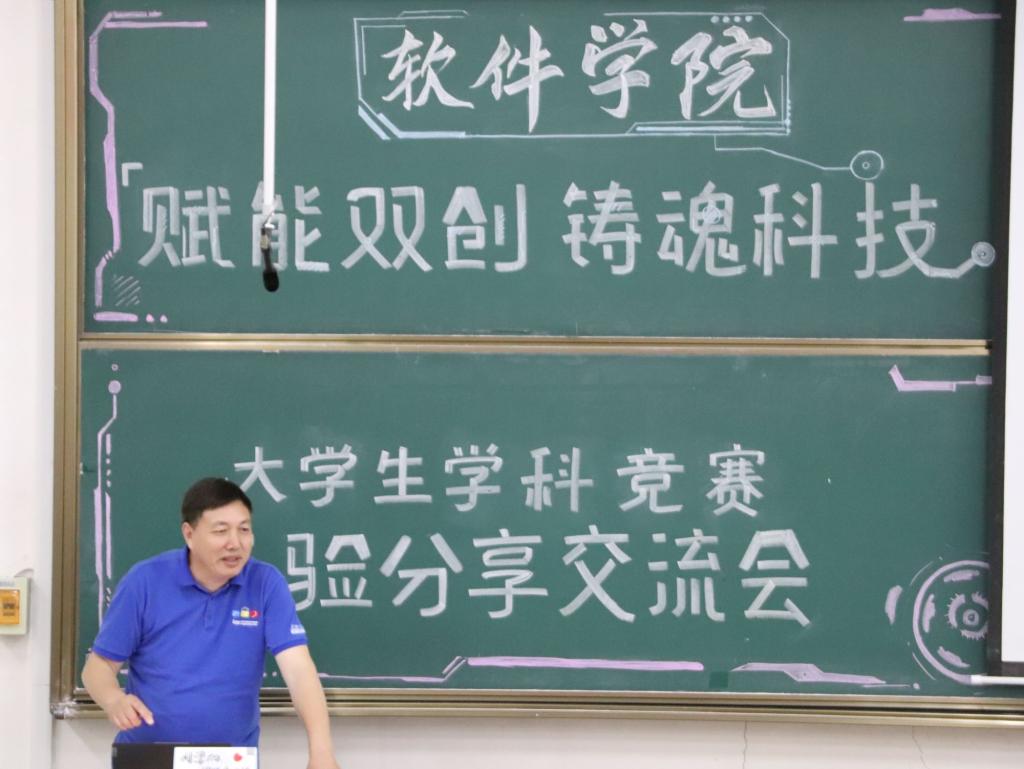 软件学院
赋能双创 铸魂科技
大学生学科竞赛
验分享交流会